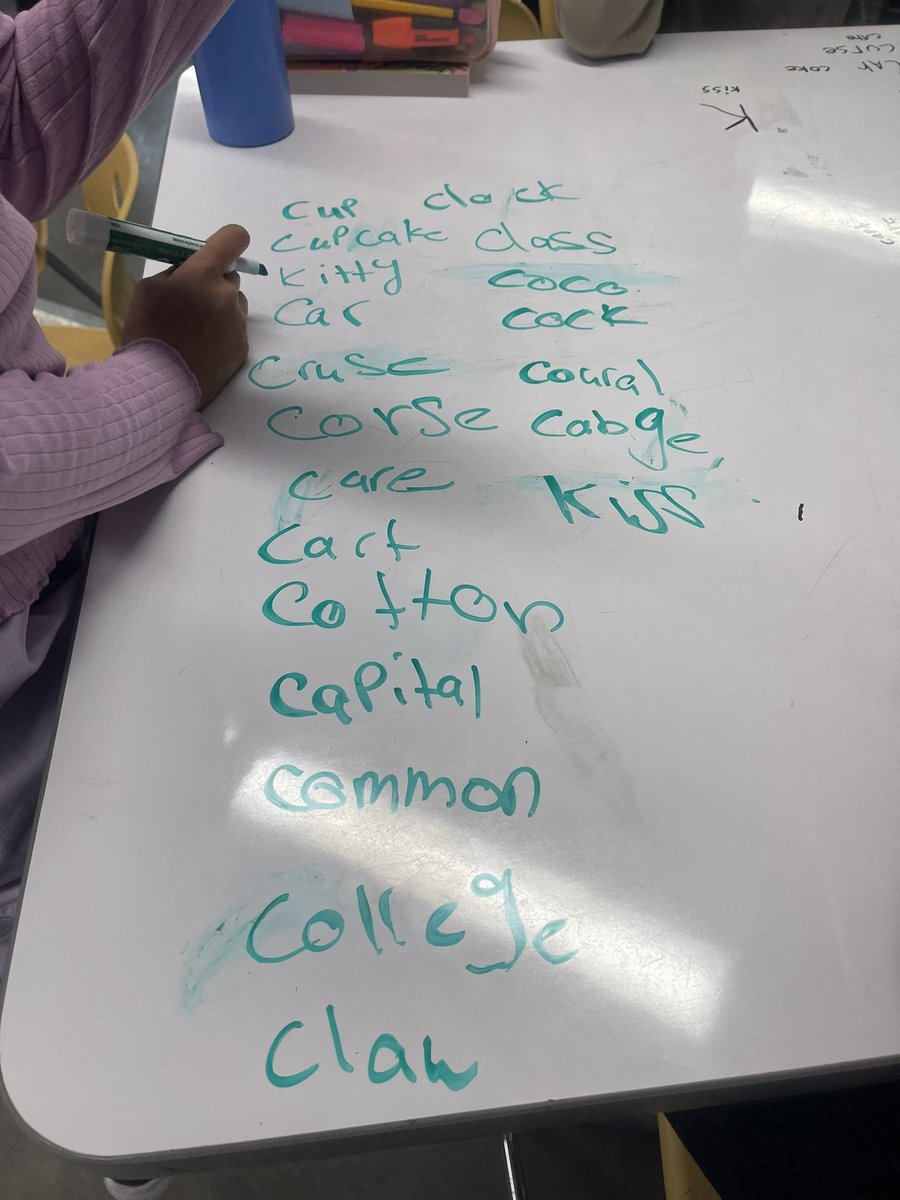 cup clock
cupcake class
kitty coco
car cock
cruse coural
corse cabge
care kiss
cart
cotton
capital
common
college
claw
K
kiss
coke
curse